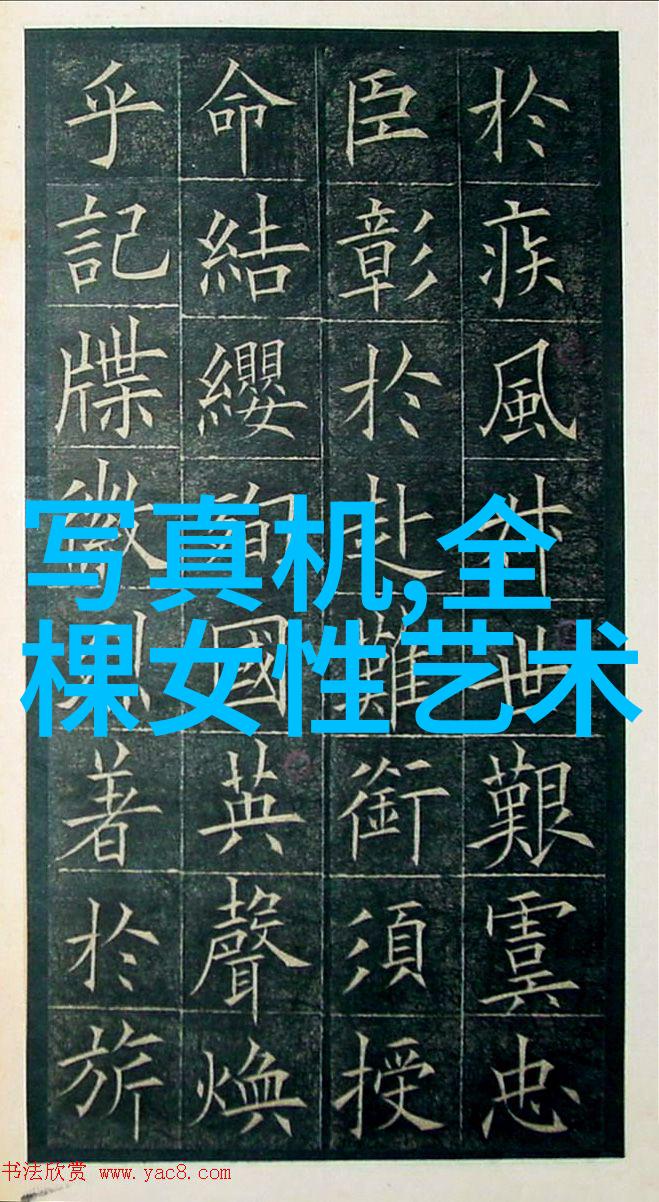 於疾風世艱虞忠
臣彰於赴難銜須授
命結纓殉國英聲煥
乎記牒徽著於旂
写真机,全
棵女性艺术
书法欣赏 www.yac8.com